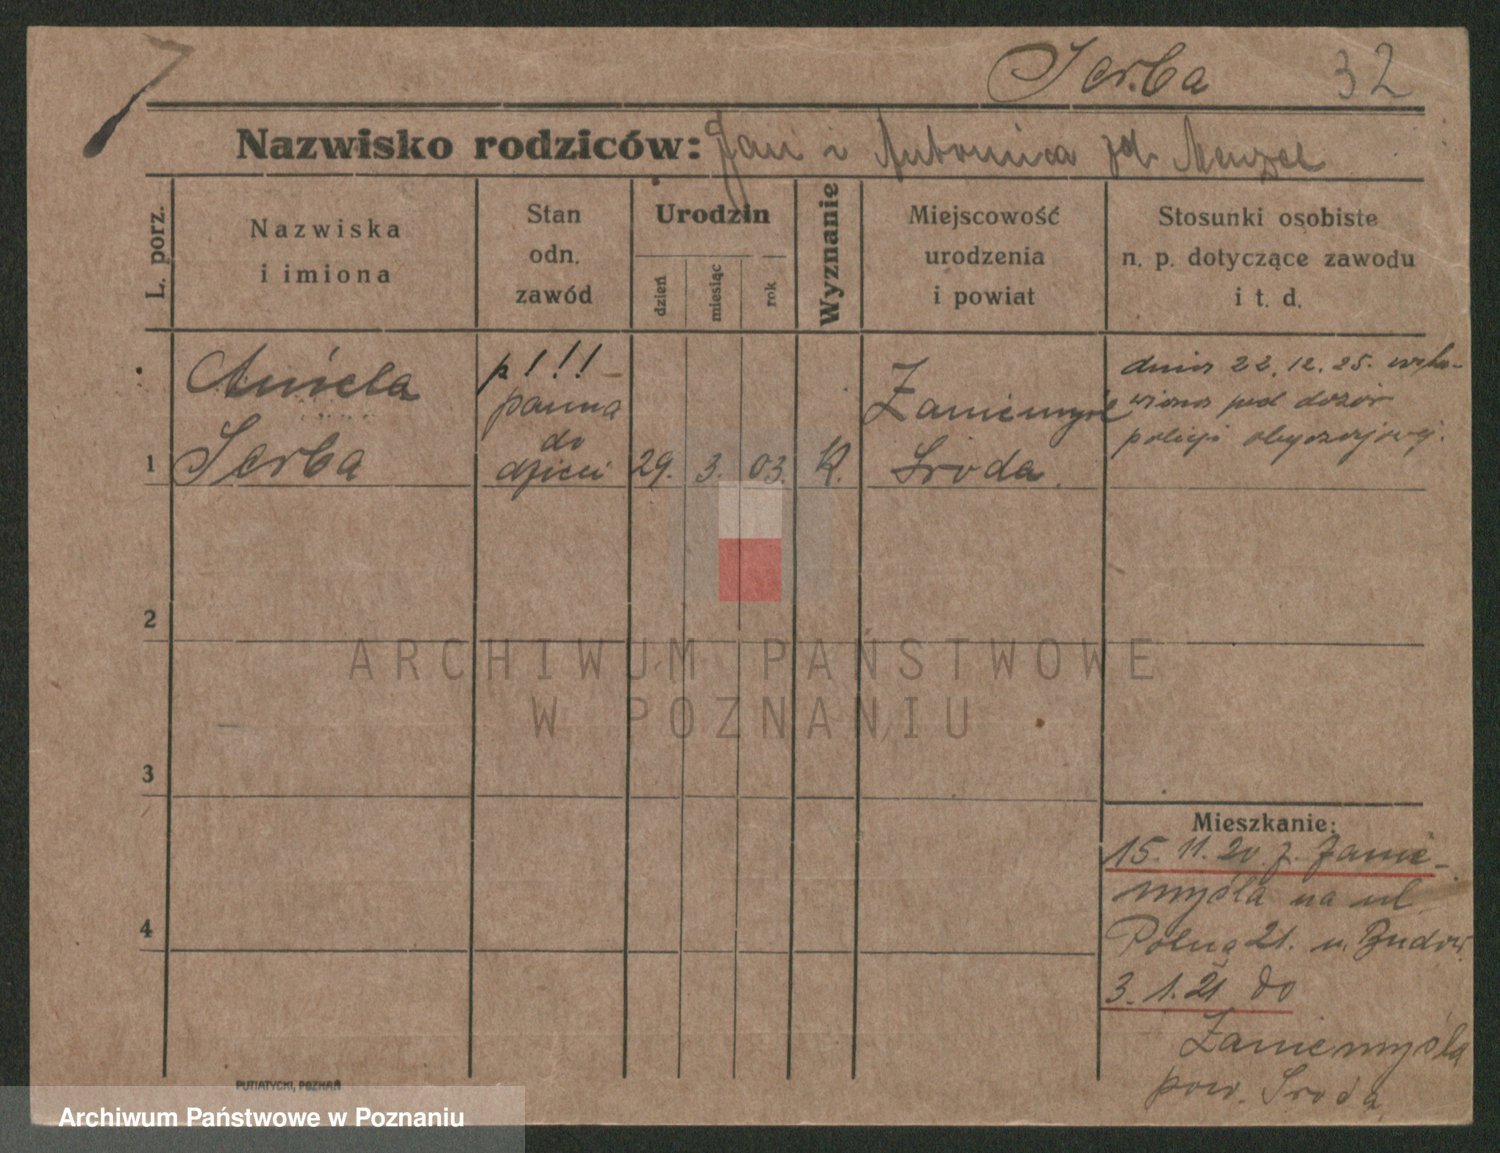 7
Serba 32
Nazwisko rodziców: Jan i Antonina zd. Menzel
L. porz.
Nazwiska
i imiona
Stan
odn.
zawód
Urodzin
dzień
miesiąc
rok
Wyznanie
Miejscowość
urodzenia
i powiat
Stosunki osobiste
n. p. dotyczące zawodu
i t. d.
Aniela
Serba
p!!! –
panna
do
dzieci
29. 3. 03.
K.
Zaniemyśl
Środa.
dnia 22.12.25.
pod dozór
policji obyczajowej.
1
2
3
4
Mieszkanie:
15.11.20 z Zanie-
myśla na ul.
Polną 21. u. Budow.
3.1.21 do
Zaniemyśla
pow. Środa.
PUTIATYCKI, POZNAŃ
ARCHIWUM PAŃSTWOWE
W POZNANIU
Archiwum Państwowe w Poznaniu